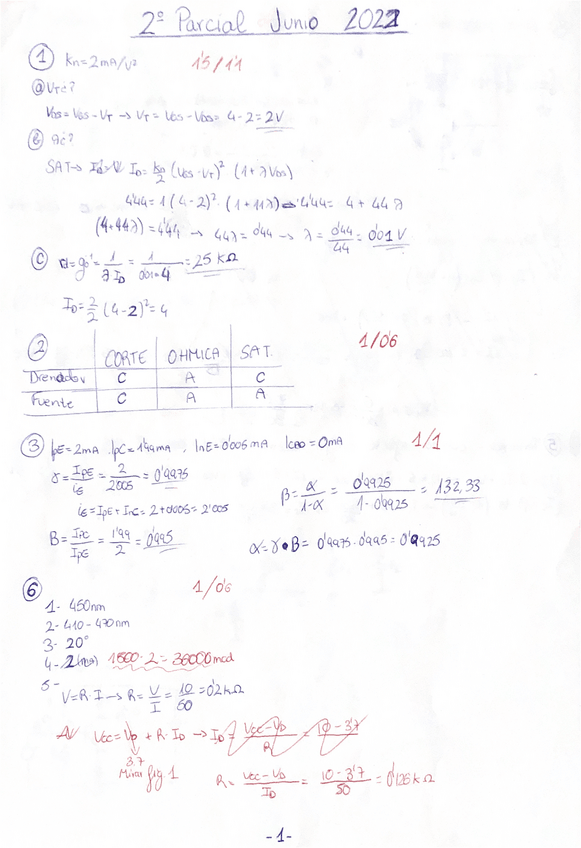 2º Parcial Junio 2022
① Kn=2mA/V² 1'5/1'1
ⓐ VT¿?
VDS=VGS-VT → VT=VGS-VDS= 4-2=2V
ⓑ λ¿?
SAT→ ID= Kn/2 (VGS-VT)² (1+λVDS)
4'44=1(4-2)²·(1+11λ)→4'44= 4+44λ
(4+44λ)=4'44 → 44λ=0'44 → λ= 0'44/44 =0'01V
ⓒ rd=go⁻¹= 1/λID = 1/0'01·4 =25KΩ
ID= 2/2 (4-2)²=4
② 1/0'6
CORTE OHMICA SAT.
Drenador C A C
Fuente C A A
③ IpE=2mA IpC=1'99mA, InE=0'005mA ICBO=0mA 1/1
γ= IpE/iE = 2/2'005 =0'9975
iE=IpE+InE=2+0'005=2'005
β= α/1-α = 0'9925/1-0'9925 = 132,33
B= IpC/IpE = 1'99/2 =0'995
α=γ·B= 0'9975·0'995=0'9925
⑥ 1/0'6
1- 450nm
2- 410-470nm
3- 20°
4- 1800·2=36000mcd
5- V=R·I→R= V/I = 10/50 =0'2KΩ
Vcc=VD+R·ID →ID= Vcc-VD/R = 10-3'7
3.7
Mirar fig. 1
R= Vcc-VD/ID = 10-3'7/50 =0'126KΩ
-1-